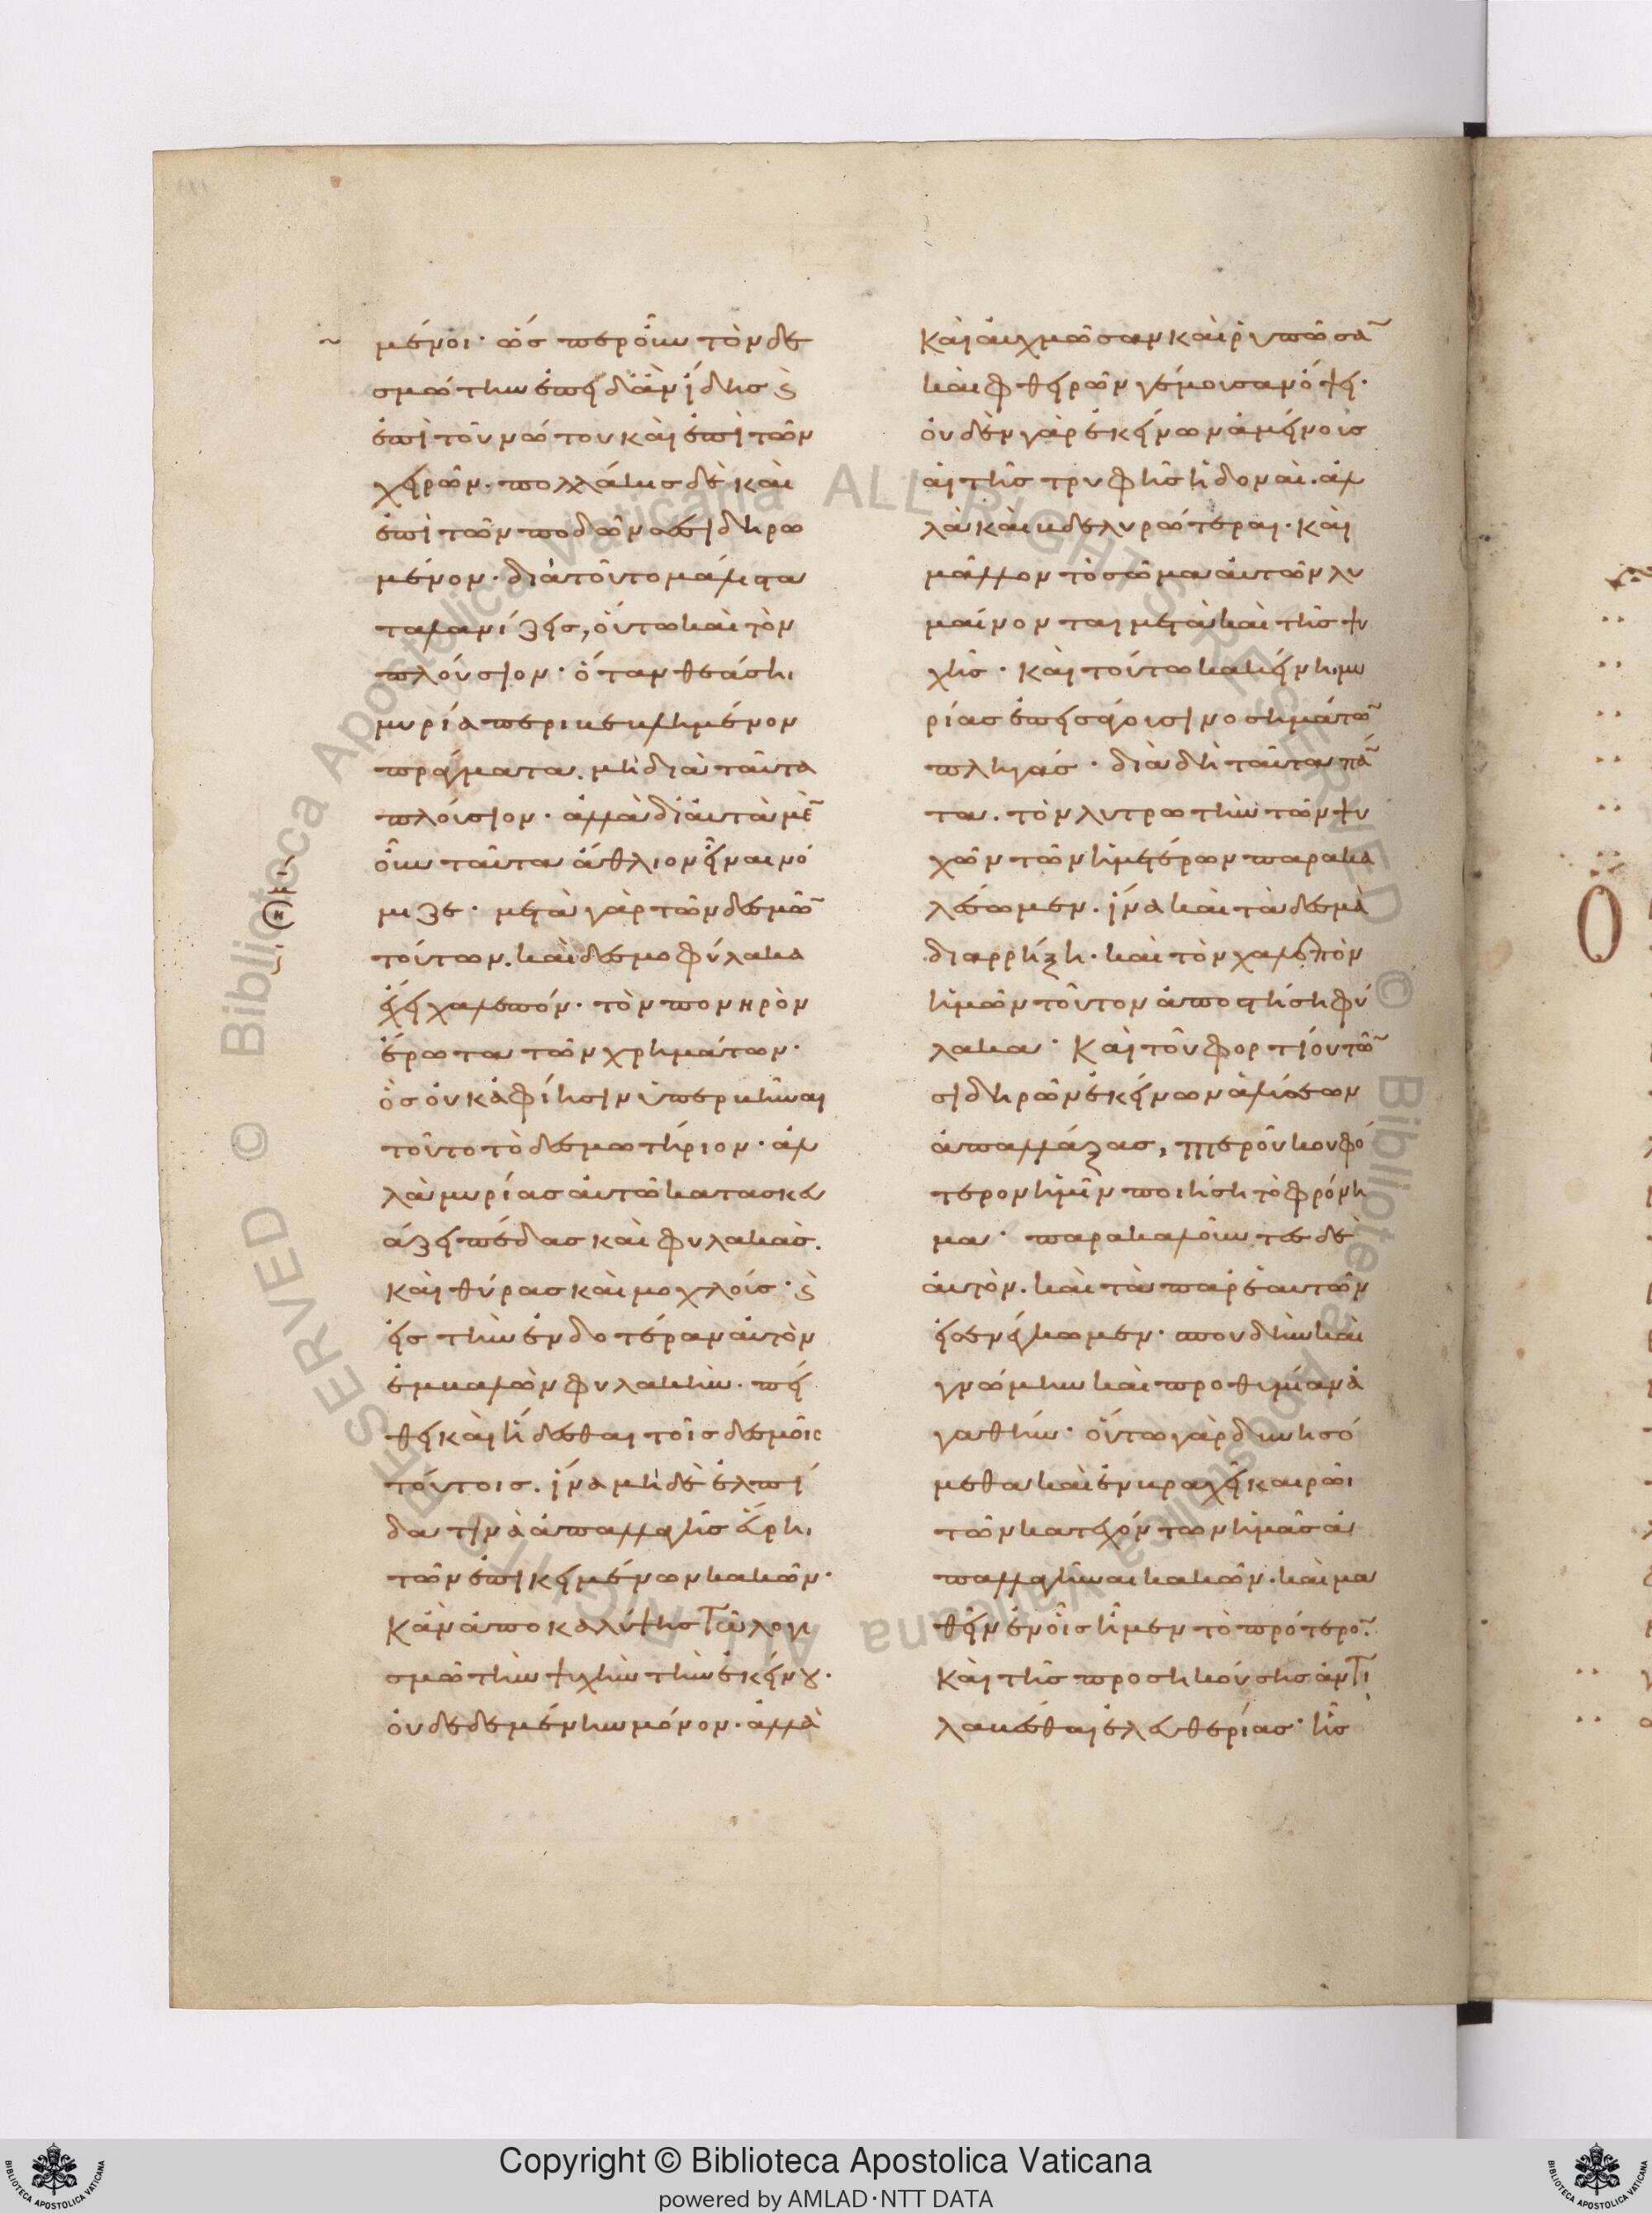 μένοι· ὥσπερ οὖν τὸν δε
σμώτην ἐπειδὰν ἴδῃς ϗ
ἐπὶ τοῦ νώτου καὶ ἐπὶ τῶν
χειρῶν. πολλάκις δὲ καὶ
ἐπὶ τῶν ποδῶν σεσιδηρω
μένον· διὰ τοῦτο μάλιστα
ταλανίζεις, οὕτω καὶ τὸν
πλούσιον· ὅταν θεάσῃ
μυρία περικεκλημένον
πράγματα. μὴ διὰ ταῦτα
πλούσιον· ἀλλὰ δι' αὐτὰ μὲ̃
οὖν ταῦτα ἄθλιον εἶναι νό
μιζε· μετὰ γὰρ τῶν δεσμῶ̃
τούτων. καὶ δεσμοφύλακα
ἔχει χαλεπόν· τὸν πονηρὸν
ἔρωτα τῶν χρημάτων·
ὃς οὐκ ἀφίησιν ὑπερβῆναι
τοῦτο τὸ δεσμωτήριον· ἀλ
λὰ μυρίας αὐτῶ κατασκευ
άζει πέδας καὶ φυλακάς.
καὶ θύρας καὶ μοχλούς· ϗ
εἰς τὴν ἐνδοτέραν αὐτὸν
ἐμβαλὼν φυλακὴν. πεί
θει καὶ ἥδεσθαι τοῖς δεσμοῖς
τούτοις. ἵνα μηδὲ ἐλπί
δα τινὰ ἀπαλλαγῆς εὕρῃ.
τῶν ἐπικειμένων κακῶν·
Κἂν ἀποκαλύψῃς τῶ λογι
σμῶ τὴν ψυχὴν τὴν ἐκείνου.
οὐ δεδεμένην μόνον· ἀλλὰ
Καὶ αὐχμῶσαν καὶ ῥυπῶσα̃
καὶ φθειρῶν γέμουσαν ὄψει·
οὐδὲν γὰρ ἐκείνων ἀμείνους
αἱ τῆς τρυφῆς ἡδοναὶ. ἀλ
λὰ καὶ βδελυρώτεραι· καὶ
μᾶλλον τὸ σῶμα αὐτῶν λυ
μαίνονται μετὰ καὶ τῆς ψυ
χῆς· καὶ τούτω κακείνη μυ
ρίας ἐπεισάγουσι νοσημάτω̃
πληγάς· διὰ δὴ ταῦτα πά̃
τα. τὸν λυτρωτὴν τῶν ψυ
χῶν τῶν ἡμετέρων παρακα
λέσωμεν. ἵνα καὶ τὰ δεσμὰ
διαρρήξῃ. καὶ τὸν χαλεπὸν
ἡμῶν τοῦτον ἀποστήσῃ φύ
λακα· Καὶ τοῦ φορτίου τῶ̃
σιδηρῶν ἐκείνων ἁλύσεων
ἀπαλλάξας, πτεροῦ κουφό
τερον ἡμῖν ποιήσῃ τὸ φρόνη
μα· παρακαλοῦντες δὲ
αὐτὸν. καὶ τὰ παρ' ἑαυτῶν
εἰσενέγκωμεν· σπουδὴν καὶ
γνώμην καὶ προθυμίαν ἀ
γαθήν· οὕτω γὰρ δυνησό
μεθα καὶ ἐν βραχεῖ καιρῶι
τῶν κατεχόντων ἡμᾶς ἀ
παλλαγῆναι κακῶν. καὶ μα
θεῖν ἐν οἷς ἦμεν τὸ πρότερο̃.
Καὶ τῆς προσηκούσης ἀντι
λαβέσθαι ἐλευθερίας· ἧς